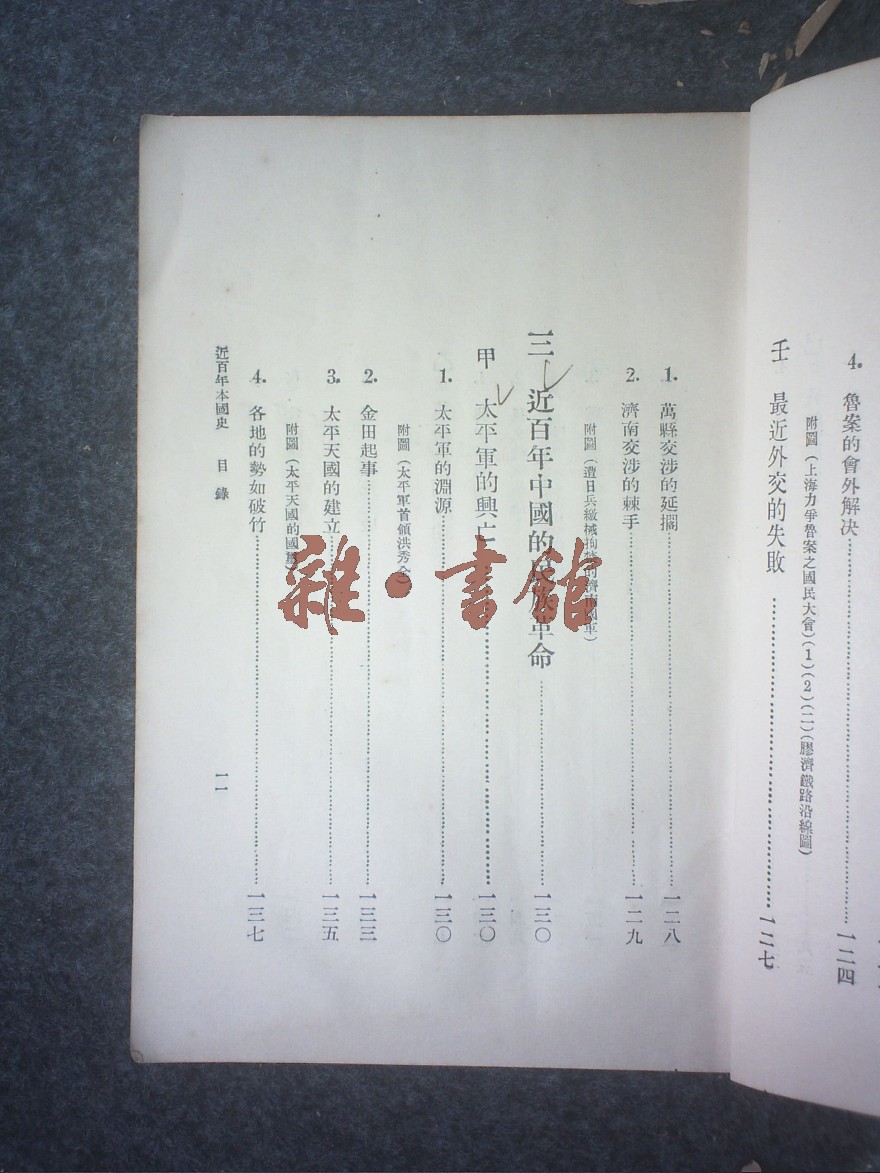 4. 魯案的會外解决……一二四
附圖（上海力爭魯案之國民大會）（1）（2）（二）（膠濟鐵路沿線圖）
壬　最近外交的失敗……一二七
1. 萬縣交涉的延擱……一二八
2. 濟南交涉的棘手……一二九
附圖（遭日兵繳械拘禁的濟南國軍）
三　近百年中國的民族革命……一三〇
甲　太平軍的興亡……一三〇
1. 太平軍的淵源……一三〇
附圖（太平軍首領洪秀全）
2. 金田起事……一三三
3. 太平天國的建立……一三五
附圖（太平天國的國璽）
4. 各地的勢如破竹……一三七
近百年本國史　目錄　一一
雜·書館